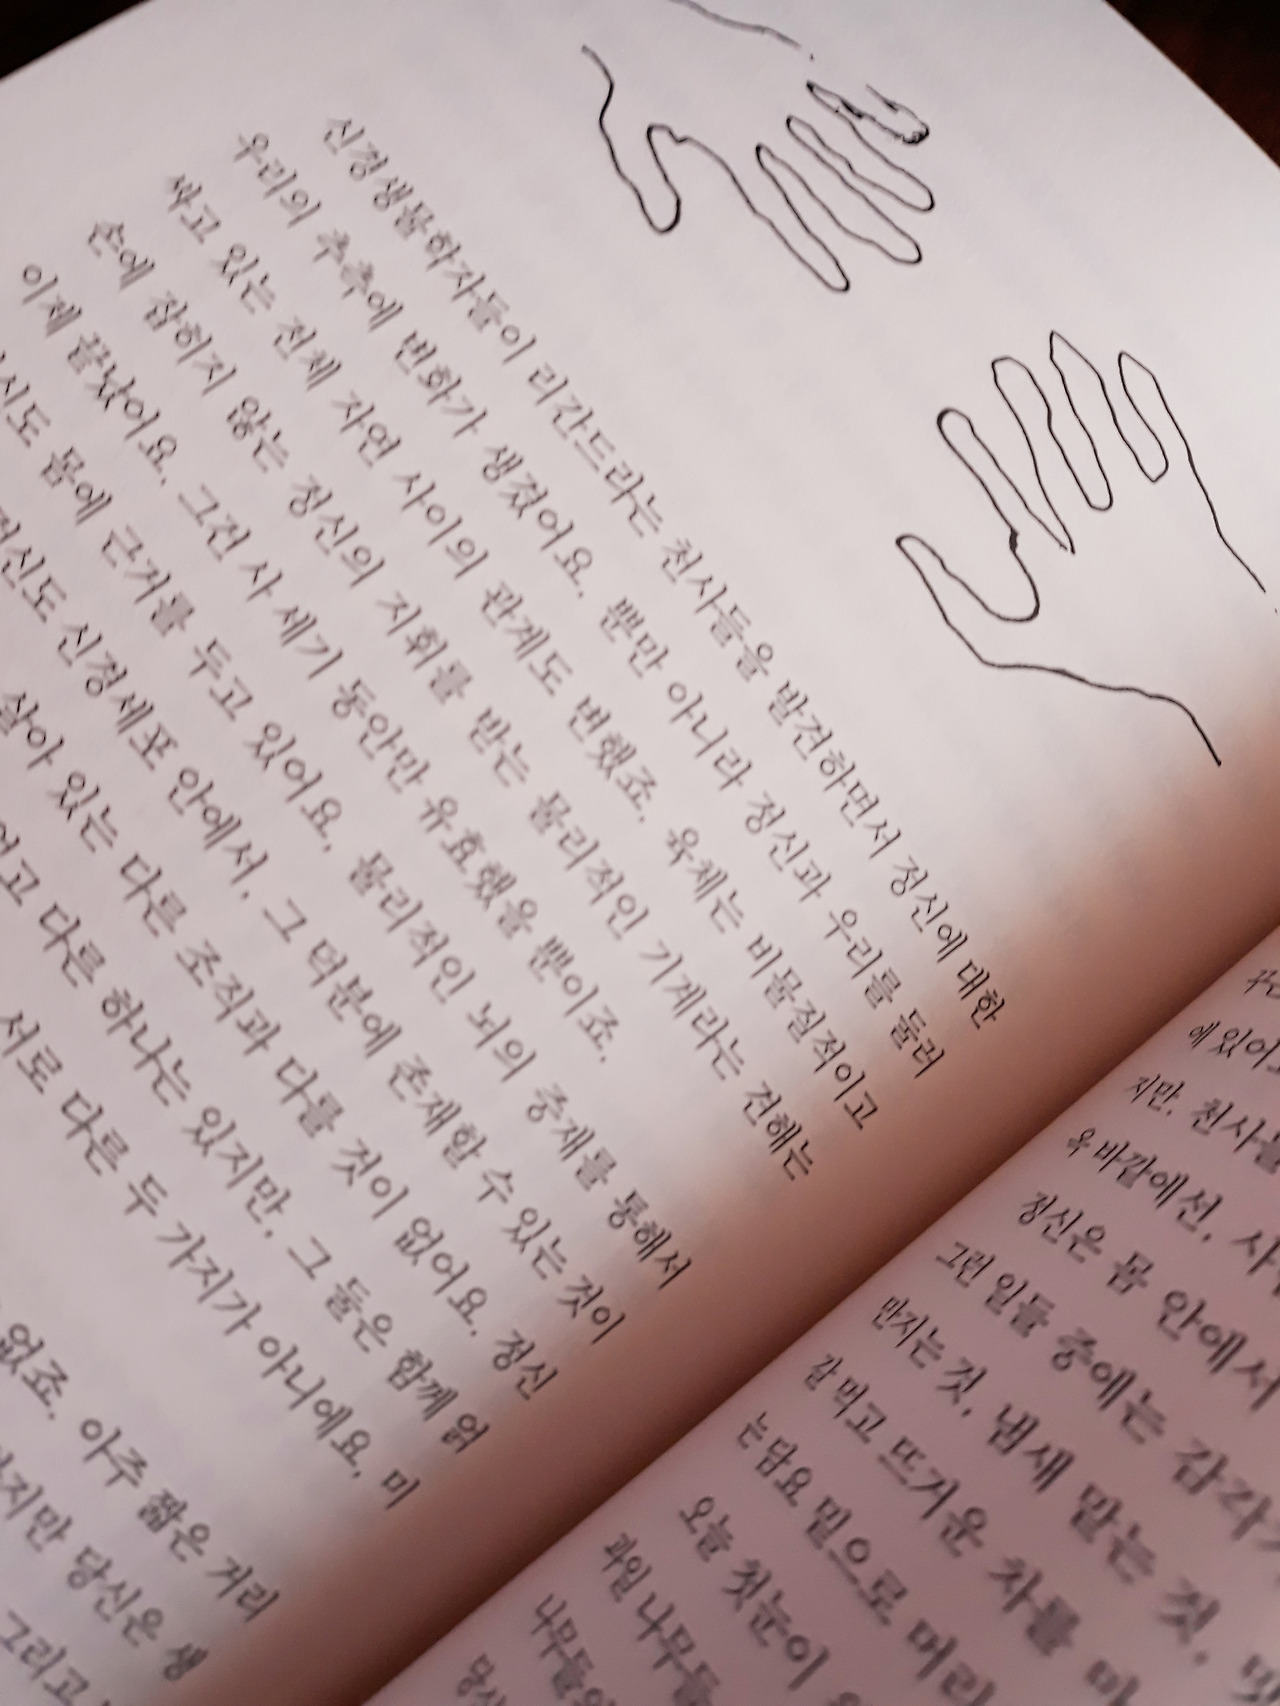 신경생물학자들이 리간드라는 천사들을 발견하면서 정신에 대한
우리의 추측에 변화가 생겼어요. 뿐만 아니라 정신과 우리를 둘러
싸고 있는 전체 자연 사이의 관계도 변했죠. 육체는 비물질적이고
손에 잡히지 않는 정신의 지휘를 받는 물리적인 기계라는 견해는
이제 끝났어요. 그건 사 세기 동안만 유효했을 뿐이죠.
몸에 근거를 두고 있어요. 물리적인 뇌의 중재를 통해서
신경세포 안에서, 그 덕분에 존재할 수 있는 것이
살아 있는 다른 조직과 다를 것이 없어요. 정신
다른 하나는 있지만, 그 둘은 함께 얽
서로 다른 두 가지가 아니에요. 미
없죠. 아주 짧은 거리
당신은 생
그리고
에 있어
지만. 천사들
육 바깥에선,
정신은 몸 안에서
그런 일들 중에는 감각
만지는 것, 냄새 맡는 것,
갈 먹고 뜨거운 차를 마
는 담요 밑으로 머리
오늘 첫눈이
과일 나무들
나무들